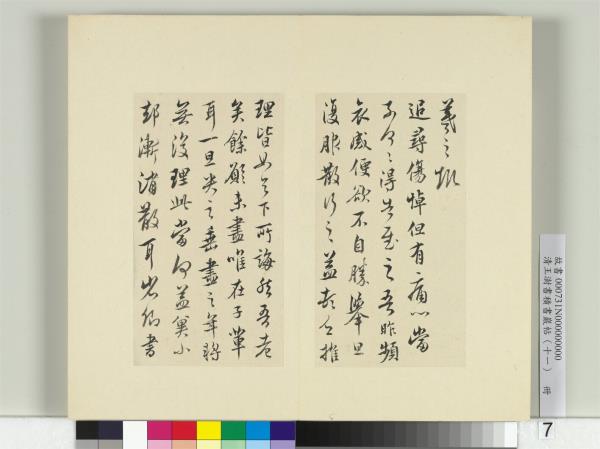 羲之報
追尋傷悼但有痛心當
奈何〻得告慰之吾昨頻
哀感便欲不自勝舉旦
復服散行之益頓乏推
理皆如足下所誨然吾老
矣餘願未盡唯在子輩
耳一旦哭之垂盡之年將
無復理此當何益冀小
卻漸消散耳省卿書
故書000731N000000000
清王澍書積書巖帖(十一) 冊
7